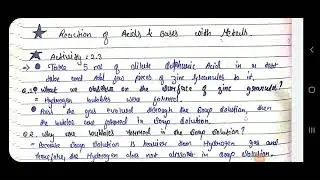 Reaction of Acids & Bases with Metals
Activity: 2.3
Take 5 ml of dilute Sulphuric Acid in a test
tube and Add few pieces of zinc Granules to it.
Q.1 What we observe on the surface of zinc granules?
= Hydrogen bubbles were formed.
Pass the gas evolved through the Soap Solution, then
the bubbles are formed in Soap Solution.
Q.2. Why are bubbles formed in the Soap Solution?
= Because Soap Solution is heavier than Hydrogen gas and
therefore, the Hydrogen does not dissolve in Soap Solution.